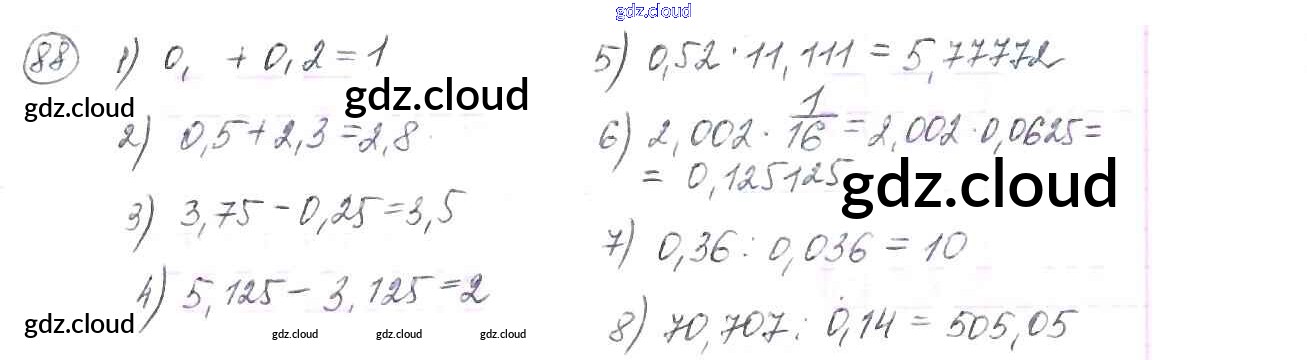 gdz.cloud
88 1) 0, + 0,2 = 1
gdz.cloud
gdz.cloud
2) 0,5 + 2,3 = 2,8
3) 3,75 - 0,25 = 3,5
4) 5,125 - 3,125 = 2
gdz.cloud
gdz.cloud gdz.cloud gdz.cloud
5) 0,52 · 11,111 = 5,77772
6) 2,002 · 1/16 = 2,002 · 0,0625 =
= 0,125125
gdz.cloud
7) 0,36 : 0,036 = 10
8) 70,707 : 0,14 = 505,05